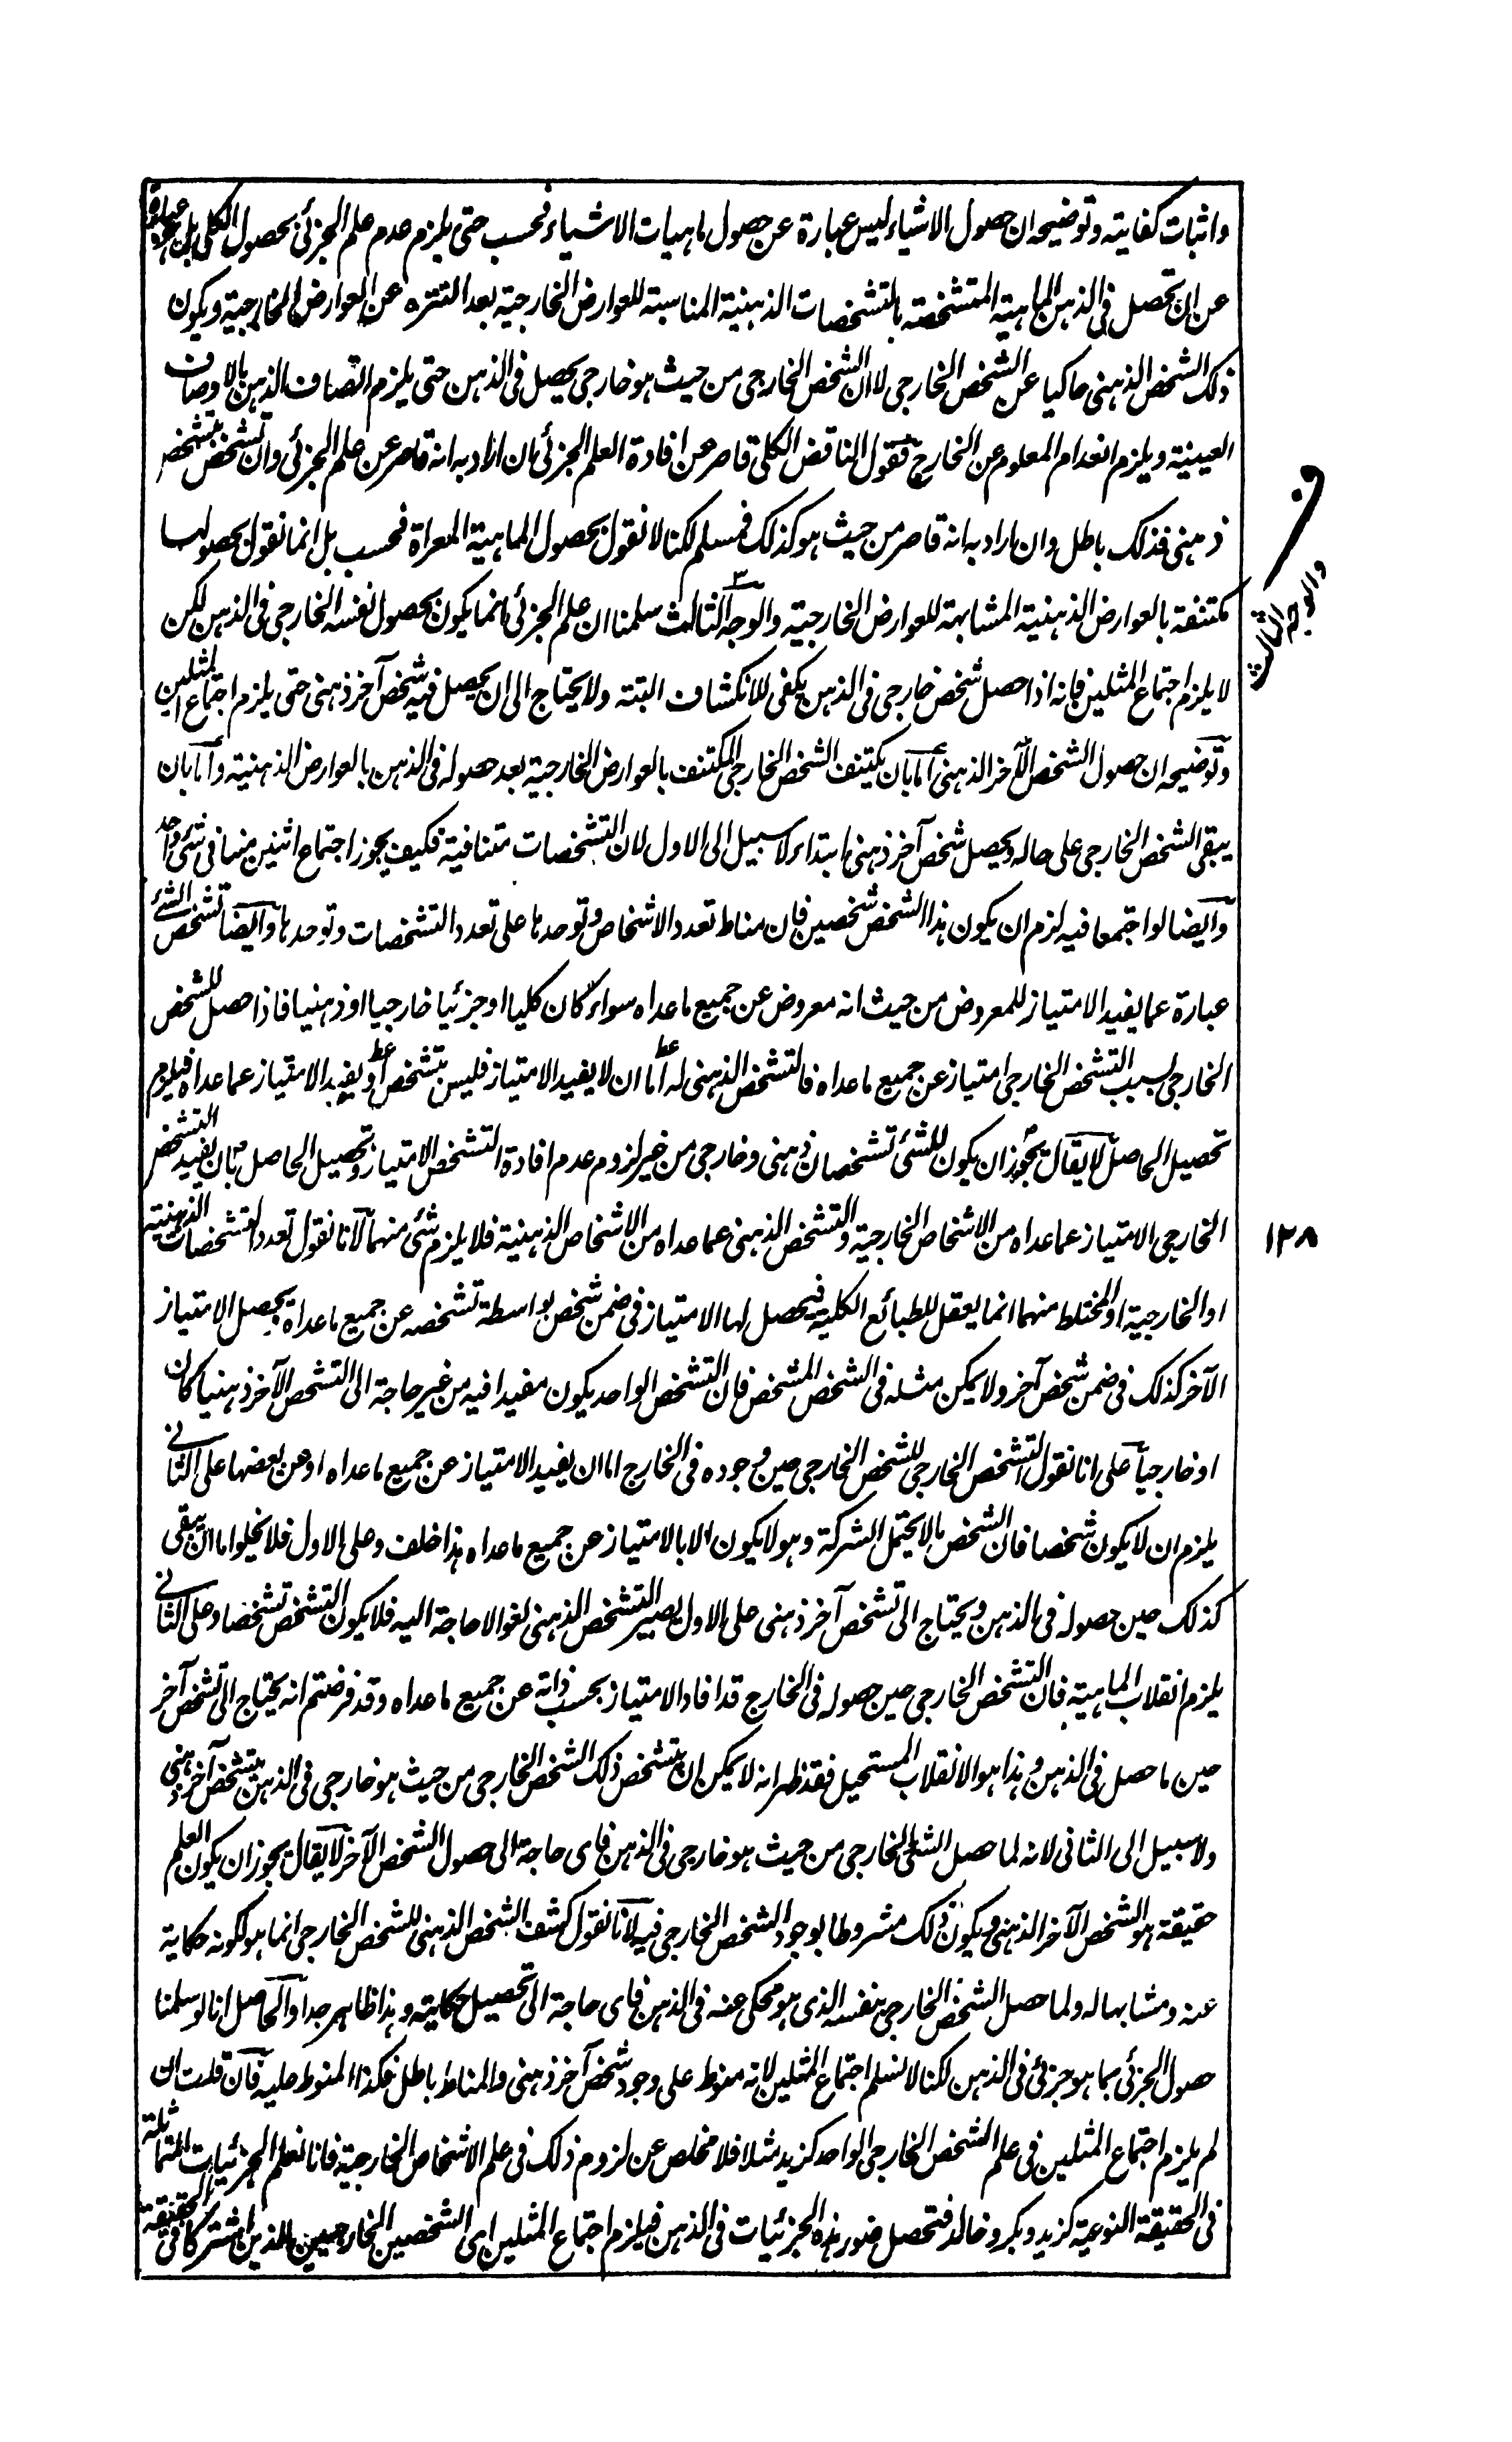 واثبات كفايته وتوضيحه ان حصول الاشياء ليس عبارة عن حصول ماهيات الاشياء فحسب حتى يلزم عدم علم الجزئى بحصول الكلى بل هو عبارة
عن ان تحصل فى الذهن الماهية المتشخصة بالتشخصات الذهنية المناسبة للعوارض الخارجية بعد التنزه عن العوارض الخارجية ويكون
ذلك الشخص الذهنى حاكيا عن الشخص الخارجى لا ان الشخص الخارجى من حيث هو خارجى يحصل فى الذهن حتى يلزم اتصاف الذهن بالاوصاف
العينية ويلزم انعدام المعلوم عن الخارج فقول الناقض الكلى قاصر عن افادة العلم الجزئى ان اراد به انه قاصر عن علم الجزئى وان تشخص بتشخص
ذهنى فذلك باطل وان اراد به انه قاصر من حيث هو كذلك فمسلم لكنا لا نقول بحصول الماهية المعراة فحسب بل انما نقول بحصولها
مكتنفة بالعوارض الذهنية المشابهة للعوارض الخارجية والوجه الثالث سلمنا ان علم الجزئى انما يكون بحصول نفسه الخارجى فى الذهن لكن
والوجه الثالث
لا يلزم اجتماع المثلين فانه اذا حصل شخص خارجى فى الذهن يكفى للانكشاف البتة ولا يحتاج الى ان يحصل فيه شخص آخر ذهنى حتى يلزم اجتماع المثلين
وتوضيحه ان حصول الشخص الآخر الذهنى اما بان يكتنف الشخص الخارجى المكتنف بالعوارض الخارجية بعد حصوله فى الذهن بالعوارض الذهنية واما بان
يبقى الشخص الخارجى على حاله ويحصل شخص آخر ذهنى ابتداء لا سبيل الى الاول لان التشخصات متنافية فكيف يجوز اجتماع اثنين منها فى شئ واحد
وايضا لو اجتمعا فيه لزم ان يكون هذا الشخص شخصين فان مناط تعدد الاشخاص وتوحدها على تعدد التشخصات وتوحدها وايضا تشخص الشئ
عبارة عما يفيد الامتياز للمعروض من حيث انه معروض عن جميع ما عداه سواء كان كليا او جزئيا خارجيا او ذهنيا فاذا حصل للشخص
الخارجى بسبب التشخص الخارجى امتياز عن جميع ما عداه فالتشخص الذهنى له اما ان لا يفيد الامتياز فليس بتشخص او يفيد الامتياز عما عداه فيلزم
تحصيل الحاصل لا يقال يجوز ان يكون للشئ تشخصان ذهنى وخارجى من غير لزوم عدم افادة التشخص الامتياز وتحصيل الحاصل بان يفيد التشخص
الخارجى الامتياز عما عداه من الاشخاص الخارجية والتشخص الذهنى عما عداه من الاشخاص الذهنية فلا يلزم شئ منهما لانا نقول تعدد التشخصات الذهنية
١٢٨
او الخارجية او المختلط منهما انما يعقل للطبائع الكلية فيحصل لها الامتياز فى ضمن شخص بواسطة تشخصه عن جميع ما عداه يحصل الامتياز
الآخر كذلك فى ضمن شخص آخر ولا يمكن مثله فى الشخص المشخص فان التشخص الواحد يكون مفيدا فيه من غير حاجة الى التشخص الآخر ذهنيا كان
او خارجيا على انا نقول التشخص الخارجى للشخص الخارجى حين وجوده فى الخارج اما ان يفيد الامتياز عن جميع ما عداه او عن بعضها على الثانى
يلزم ان لا يكون شخصا فان الشخص ما لا يحتمل الشركة وهو لا يكون الا بالامتياز عن جميع ما عداه هذا خلف وعلى الاول فلا يخلو اما ان يبقى
كذلك حين حصوله فى الذهن ويحتاج الى تشخص آخر ذهنى على الاول يصير التشخص الذهنى لغوا لا حاجة اليه فلا يكون التشخص تشخصا وعلى الثانى
يلزم انقلاب الماهية فان التشخص الخارجى حين حصوله فى الخارج قد افاد الامتياز بحسب ذاته عن جميع ما عداه وقد فرضتم انه يحتاج الى تشخص آخر
حين ما حصل فى الذهن وهذا هو الانقلاب المستحيل فقد ظهر انه لا يمكن ان يتشخص ذلك الشخص الخارجى من حيث هو خارجى فى الذهن بتشخص آخر ذهنى
ولا سبيل الى الثانى لانه لما حصل الشئ الخارجى من حيث هو خارجى فى الذهن فاى حاجة الى حصول الشخص الآخر لا يقال يجوز ان يكون العلم
حقيقة هو الشخص الآخر الذهنى ويكون ذلك مشروطا بوجود الشخص الخارجى فيه لانا نقول كشف الشخص الذهنى للشخص الخارجى انما هو لكونه حكاية
عنه ومشابها له ولما حصل الشخص الخارجى بنفسه الذى هو محكى عنه فى الذهن فاى حاجة الى تحصيل حكايته وهذا ظاهر جدا والحاصل انا لو سلمنا
حصول الجزئى بما هو جزئى فى الذهن لكنا لا نسلم اجتماع المثلين لانه منوط على وجود شخص آخر ذهنى والمناط باطل فكذا المنوط عليه فان قلت ان
لم يلزم اجتماع المثلين فى علم الشخص الخارجى الواحد كزيد مثلا فلا مخلص عن لزوم ذلك فى علم الاشخاص الخارجية فانا نعلم الجزئيات المتماثلة
فى الحقيقة النوعية كزيد وبكر وخالد فتحصل صور هذه الجزئيات فى الذهن فيلزم اجتماع المثلين اى الشخصين الخارجيين الذين اشتركا فى الحقيقة